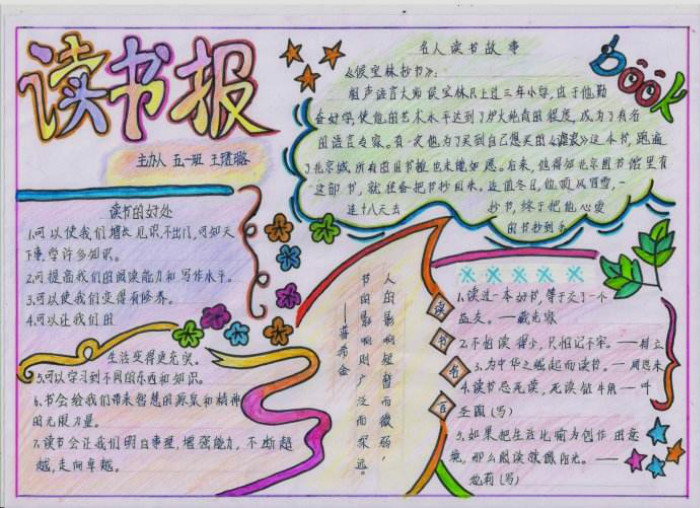 读书报
主办人 五一班 王
名人读书故事
BOOK
《侯宝林抄书》:
相声语言大师侯宝林只上过三年小学,由于他勤
奋好学,使他的艺术水平达到了炉火纯青的程度,成为了有名
的语言专家。有一次,他为了买到自己想买的《谑浪》这本书,跑遍
了北京城所有的旧书摊也未能如愿。后来,他得知北京图书馆里有
这部书,就 把书抄回来。适值冬日,他顶风冒雪,一
连十八天去
抄书,终于把他心爱
的书抄到手
读书的好处
1.可以使我们增长见识,不出门,可知天
下事,学许多知识。
2.可提高我们的阅读能力和写作水平。
3.可以使我们变得有修养。
4.可以让我们的
生活变得更充实。
5.可以学习到不同的东西和知识。
6.书会给我们带来智慧的源泉和精神
的无限力量。
7.读书会让我们明白事理,增强能力,不断超
越,走向卓越。
人的影响短暂而微弱,
书的影响则广泛而深远。
——普希金
读书名言
1.读过一本好书,等于交了一个
益友。——臧克家
2.不怕读得少,只怕记不牢。——徐特立
3.为中华之崛起而读书。——周恩来
4.读书忌死读,死读钻牛角——叶
圣陶(写)
5.如果把生活比喻为创作的意
境,那么阅读就像阳光。——
池莉(写)